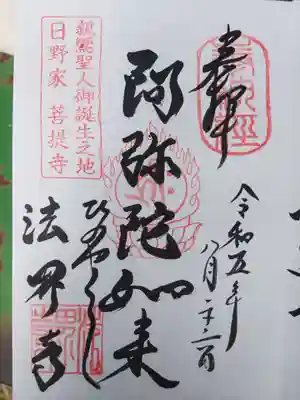 奉拝
令和五年
八月二十六日
阿弥陀如来
ひのやくし
法界寺
親鸞聖人御誕生之地
日野家 菩提寺